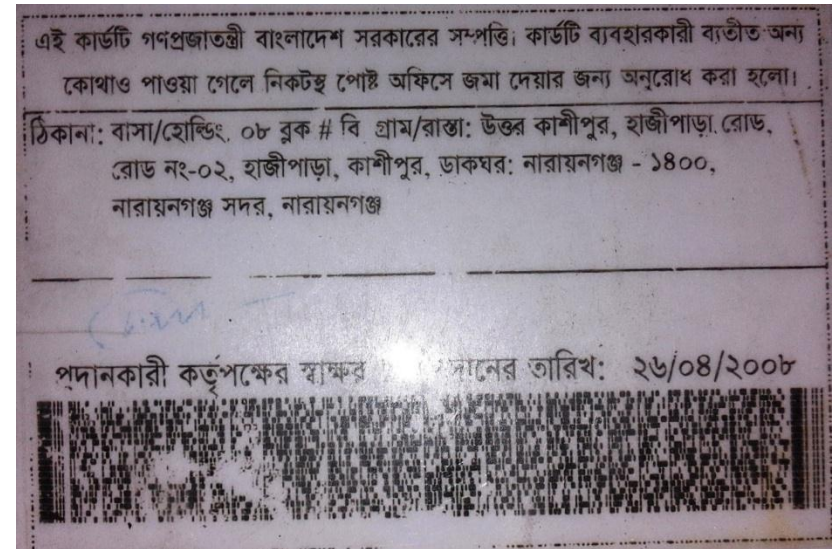 এই কার্ডটি গণপ্রজাতন্ত্রী বাংলাদেশ সরকারের সম্পত্তি। কার্ডটি ব্যবহারকারী ব্যতীত অন্য
কোথাও পাওয়া গেলে নিকটস্থ পোষ্ট অফিসে জমা দেয়ার জন্য অনুরোধ করা হলো।
ঠিকানা: বাসা/হোল্ডিং: ০৮ ব্লক # বি গ্রাম/রাস্তা: উত্তর কাশীপুর, হাজীপাড়া রোড,
রোড নং-০২, হাজীপাড়া, কাশীপুর, ডাকঘর: নারায়নগঞ্জ - ১৪০০,
নারায়নগঞ্জ সদর, নারায়নগঞ্জ
প্রদানকারী কর্তৃপক্ষের স্বাক্ষর তারিখ: ২৬/০৪/২০০৮